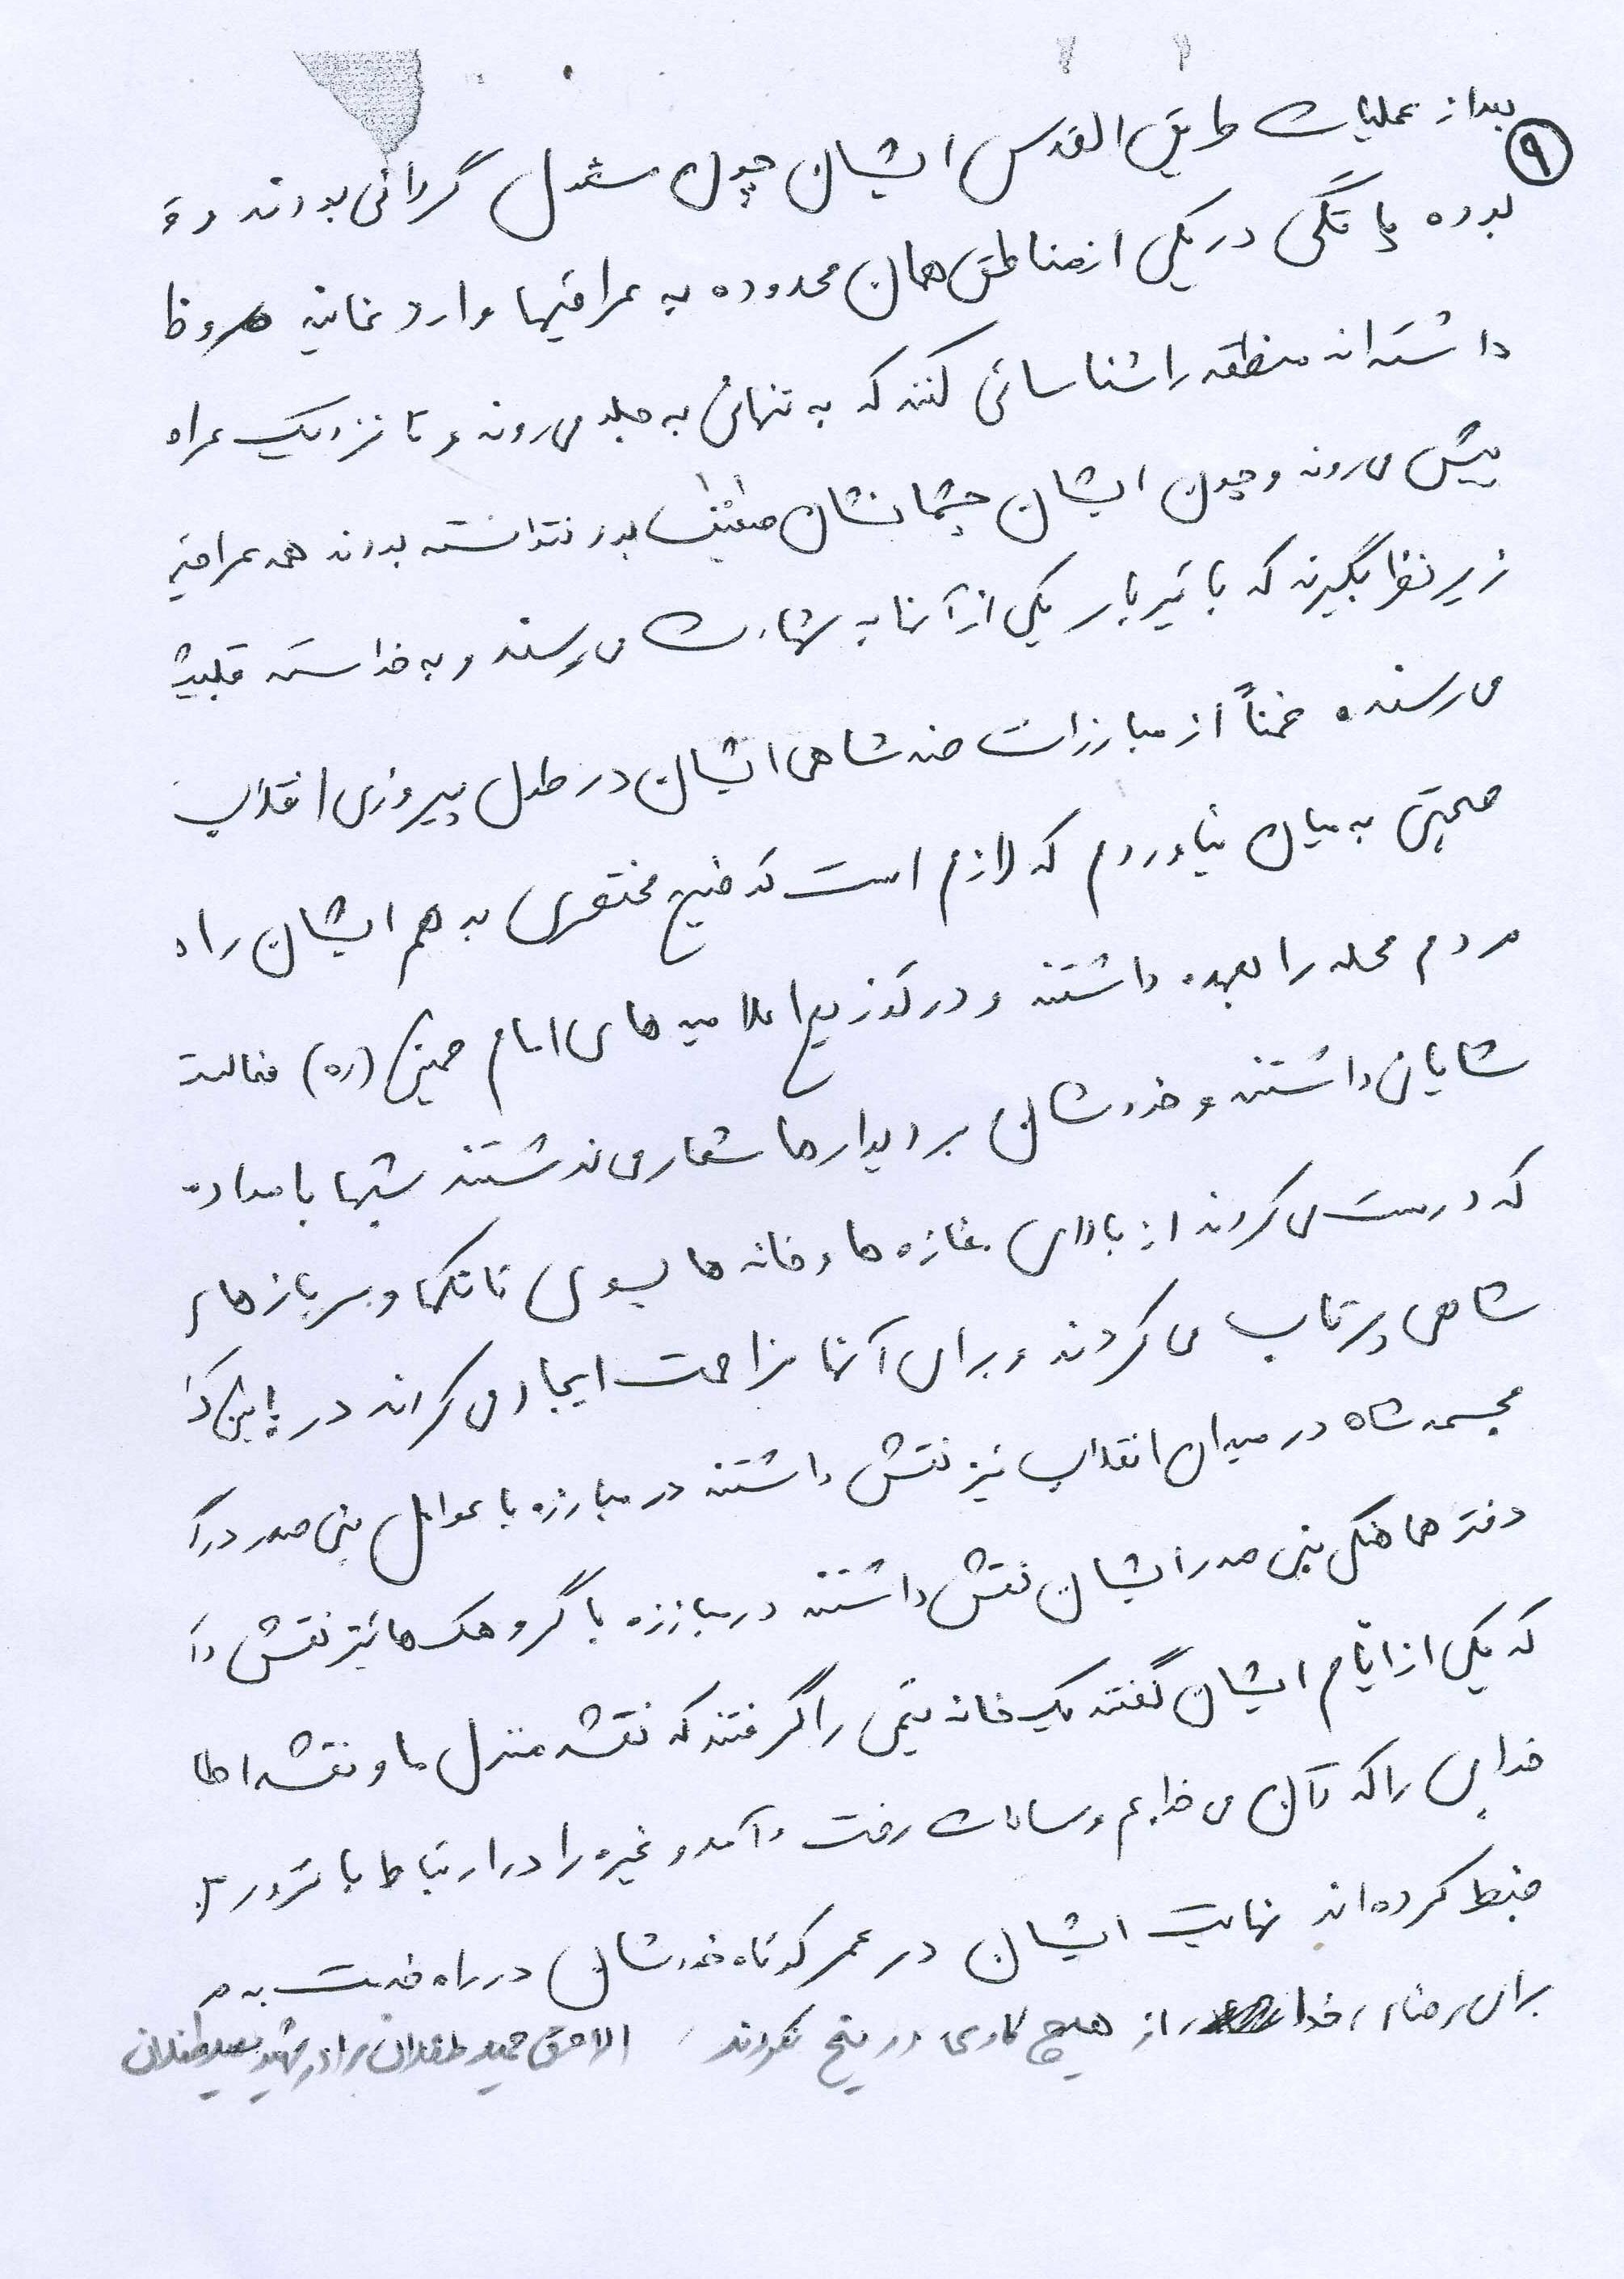 ۹
بعد از عملیات طریق القدس ایشان چون مسئول گردانی بودند و
بوده پاتکی در یکی از مناطق همان محدوده به عراقیها وارد نمایند
داشته‌اند منطقه را شناسائی کنند که به تنهائی به جلو می‌روند و تا نزدیک
پیش می‌روند و چون ایشان چشمانشان ضعیف بود نتوانسته بودند همه
زیر نظر بگیرند که با تیربار یکی از آنها به شهادت می‌رسند و به خواسته
می‌رسند. ضمناً از مبارزات ضد شاهی ایشان در طول پیروزی انقلاب
صحبتی به میان نیاوردم که لازم است توضیح مختصری بدهم ایشان
مردم محله را بعهده داشتند و در توزیع اعلامیه های امام خمینی (ره) فعالیت
شایان داشتند و خودشان بر دیوارها شعار می‌نوشتند شبها با
که درست می‌کردند از بالای مغازه ها و خانه ها بسوی تانکها و سربازهای
شاهی پرتاب می‌کردند و برای آنها مزاحمت ایجاد می‌کردند در پایین
مجسمه شاه در میدان انقلاب نیز نقش داشتند در مبارزه با عوامل بنی صدر در
دفتر هماهنگی بنی صدر ایشان نقش داشتند در مبارزه با گروهک ها نیز نقش
که یکی از ایام ایشان گفتند یک خانه تیمی را گرفتند که نقشه منزل ما و نقشه
خوابی را که در آن می‌خوابم و ساعات رفت و آمد و غیره را در ارتباط با ترور
ضبط کرده‌اند نهایت ایشان در عمر کوتاه خودشان در راه خدمت به
برای رضای خدا از هیچ کاری دریغ نکردند الاحقر حمید طفلان برادر شهید سعید طفلان